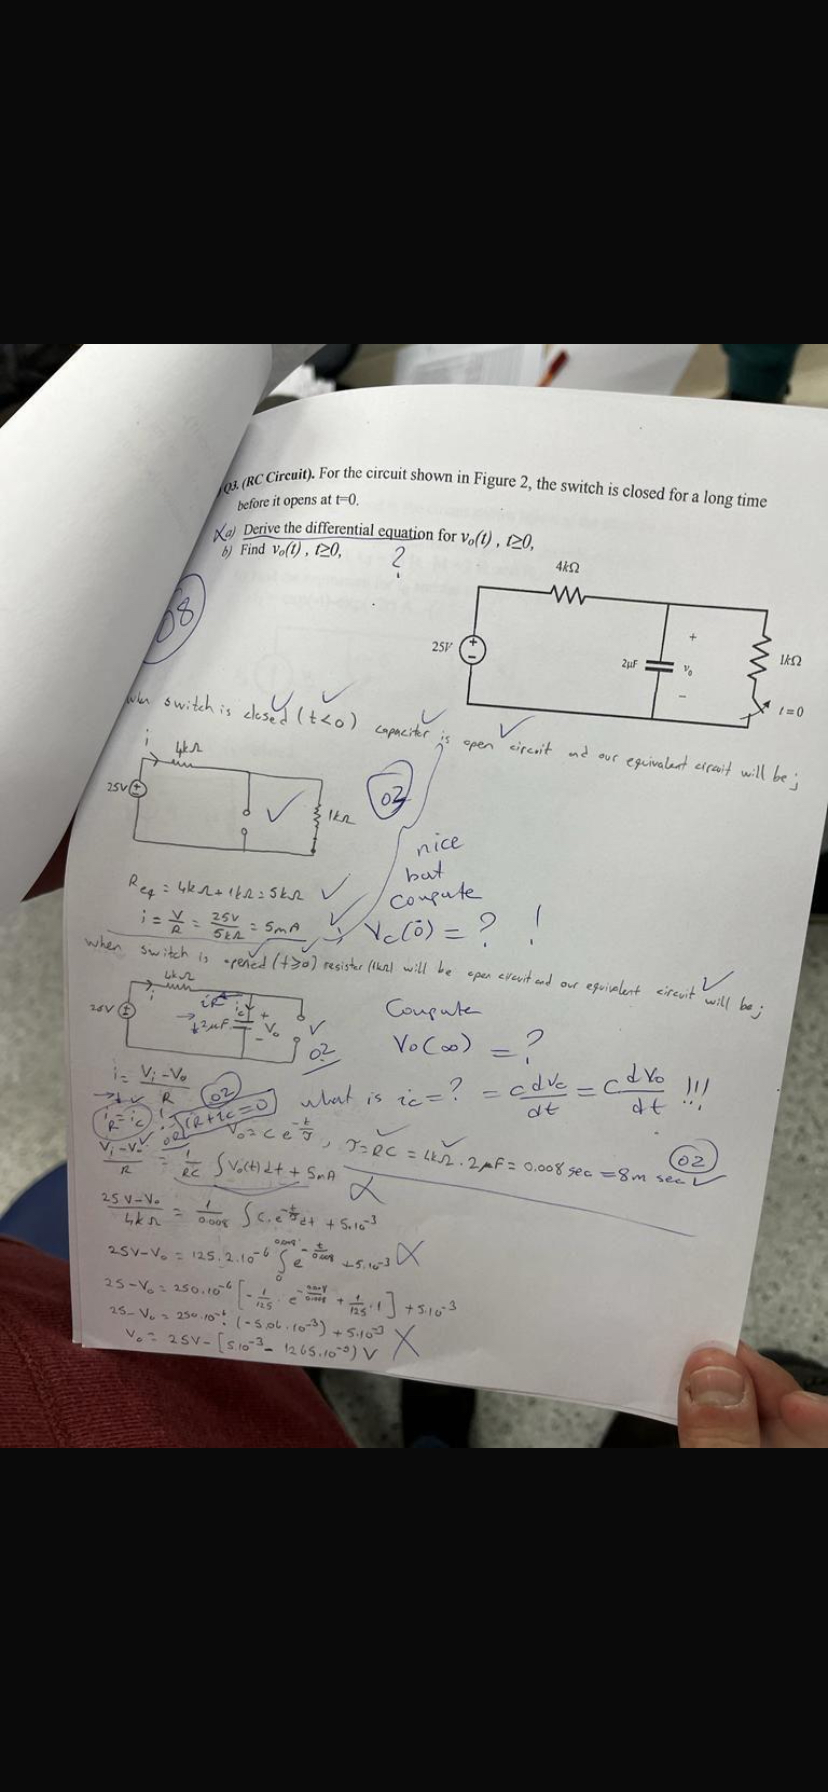 Q3. (RC Circuit). For the circuit shown in Figure 2, the switch is closed for a long time
before it opens at t=0.
a) Derive the differential equation for vo(t) , t≥0,
b) Find vo(t) , t≥0,
?
08
4kΩ
25V
+
−
2μF
+
vo
−
1kΩ
t=0
when switch is closed (t<0) capaciter is open circuit and our equivalent circuit will be;
i
4kΩ
25V
1kΩ
02
nice
but
compute
Vc(0̄) = ? !
Req = 4kΩ+1kΩ=5kΩ
i = V/R = 25V/5kΩ = 5mA
when switch is opened (t≥0) resister (1kΩ) will be open circuit and our equivalent circuit will be;
4kΩ
i
25V
iR
ic
2μF
+
Vo
−
02
Compute
Vo(∞) = ?
i = Vi-Vo/R
02
what is ic=? = C dVc/dt = C dVo/dt !!!
iR=ic
OR
iR+ic=0
Vo=Ce^-t/τ , τ=RC = 4kΩ.2μF = 0.008 sec =8m sec
02
Vi-Vo/R = 1/RC ∫Vo(t)dt + 5mA
25V-Vo/4kΩ = 1/0.008 ∫C.e^-t/τ dt + 5.10^-3
25V-Vo = 125.2.10^-6 ∫ 0 0.008 e^-t/0.008 +5.10^-3
25-Vo = 250.10^-6 [-1/125 . e^-0.008/0.008 + 1/125 .1] +5.10^-3
25-Vo = 250.10^-6 . (-5,06.10^-3) + 5.10^-3
Vo = 25V-[5.10^-3 - 1265.10^-9) V